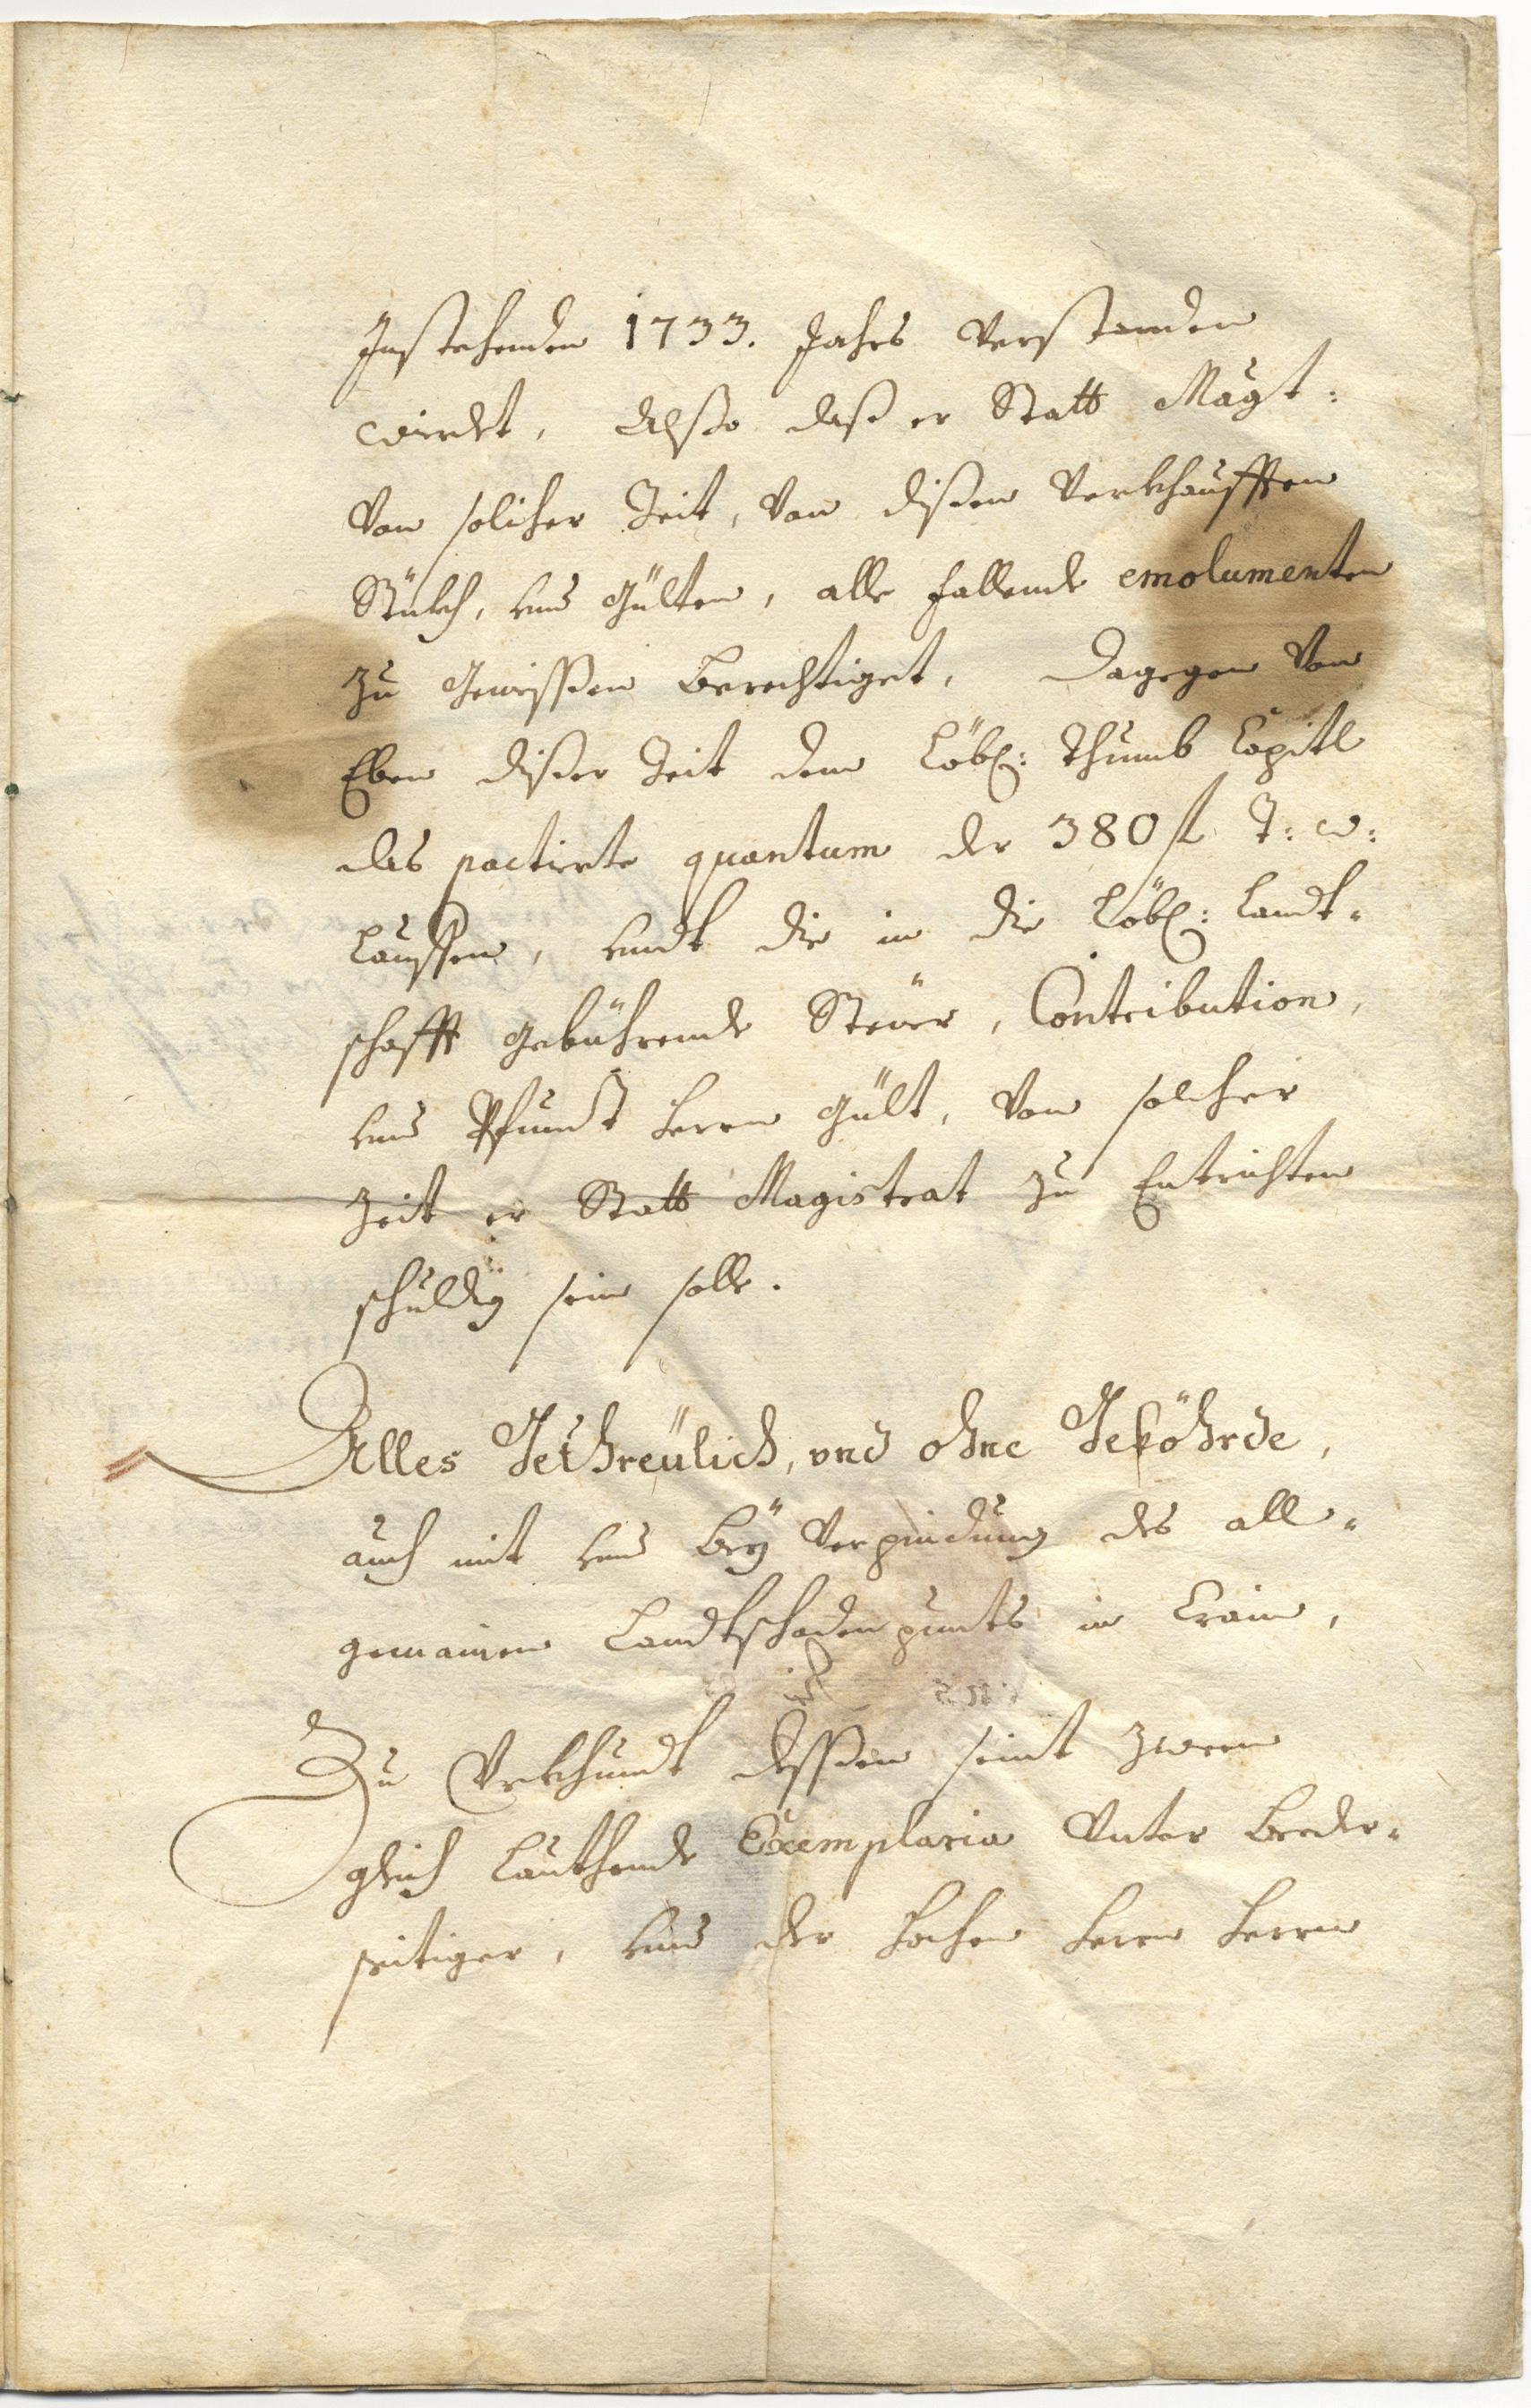 Instehenden 1733. Jahrs verstanden
wirdet, Alßo daß er Statt Magt:
von solicher Zeit, von dißen verkhaufften
Stukh, und Gülten, alle fallende emolumenten
zu Genüssen berechtiget, Dagegen von
Eben dißer Zeit dem Löbl: Thumb Capitl
das pactirte quantum der 380 fl T: W:
Lauffen, undt die in die Löbl: Landt-
schafft gebührende Steüer, Contribution,
und Pfundt herrn Gült, von solcher
Zeit er Statt Magistrat zu Entrichten
schuldig sein solle.
Alles Gethreülich, und ohne Geföhrde,
auch mit und beÿ verpindung des all-
gemainen Landtschadenpunts in Crain,
Zu Urkhundt dessen seint zween
gleich lauthende Exemplaria unter beeder-
seitiger, und der hochen herrn herrn